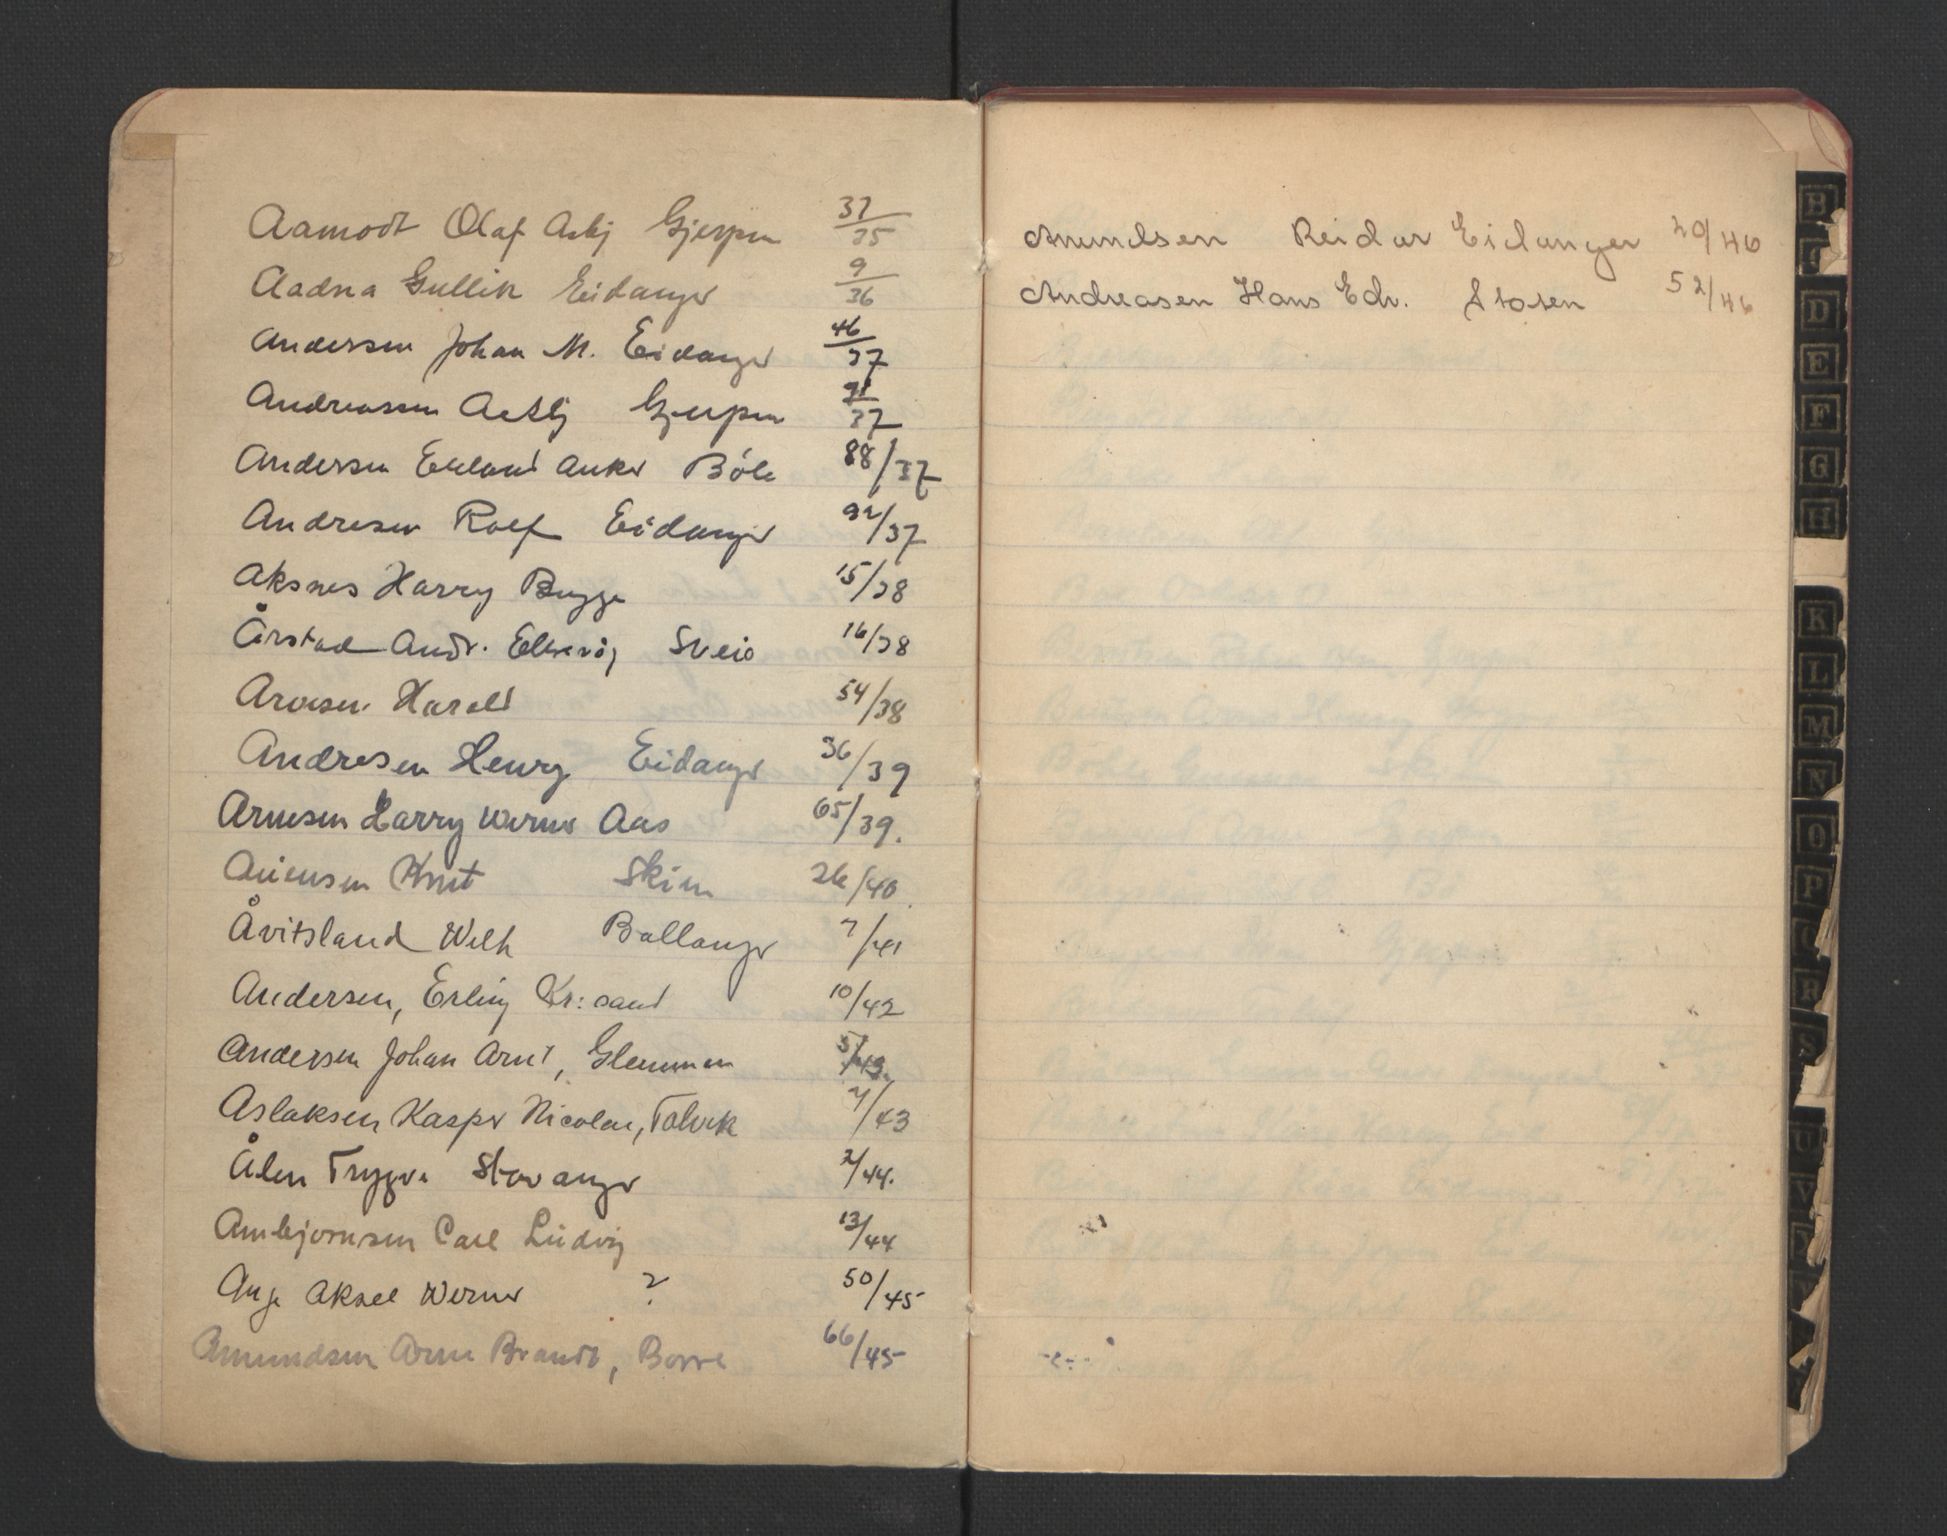 Aamodt Olaf Asbj Gjerpen 37/35
Aadna Gullik Eidanger 9/36
Andersen Johan M. Eidanger 46/37
Andreassen Asbj Gjerpen /37
Andersen Erland Anker Böle 88/37
Andresen Rolf Eidanger 92/37
Aksnes Harry Bugge 15/38
Årstad Andr. Sveio 16/38
Arnesen Harald 54/38
Andresen Henry Eidanger 36/39
Arnesen Harry Werner Aas 65/39.
Knut Skien 26/40
Åvitsland Wilh Ballanger 7/41
Andersen, Erling Kr:sand 10/42
Andersen Johan Arnt, Glemmen 5/43.
Aslaksen Kasper Nicolai, Talvik /43
Ålen Trygve Stavanger 2/44.
Arnbjörnsen Carl Ludvig 13/44
Aksel Werner ? 50/45
Amundsen Arne Brandt, Borre 66/45
Amundsen Reidar Eidanger 20/46
Andreasen Hans Edv. 52/46
B
C
D
E
F
G
H
K
L
M
N
O
P
R
S
U
V